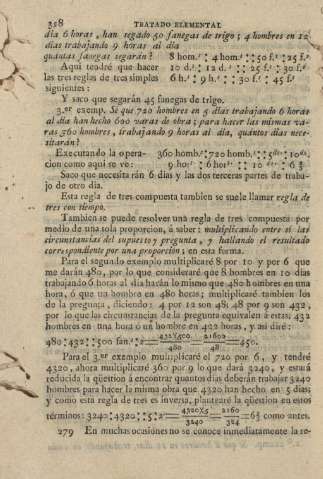 358 TRATADO ELEMENTAL
dia 6 horas, han segado 50 fanegas de trigo; 4 hombres en 12
dias trabajando 9 horas al dia
quántas fanegas segarán? 8 hom.ˢ : 4 hom.ˢ :: 50 f.ˢ : 25 f.ˢ
Aqui tendré que hacer 10 d.ˢ : 12 d.ˢ :: 25 f.ˢ : 30 f.ˢ
las tres reglas de tres simples 6 h.ˢ : 9 h.ˢ :: 30 f.ˢ : 45 f.ˢ
siguientes :
Y saco que segarán 45 fanegas de trigo.
3.ᵉʳ exemp. Se que 720 hombres en 5 dias trabajando 6 horas
al dia han hecho 600 varas de obra; para hacer las mismas va-
ras 360 hombres, trabajando 9 horas al dia, quántos dias nece-
sitarán?
Executando la opera- 360 homb.ˢ : 720 homb.ˢ :: 5 dias : 10 ds.
cion como aqui se ve: 9 hor.ˢ : 6 hor.ˢ :: 10 : 6 2/3
Saco que necesitarán 6 dias y las dos terceras partes de traba-
jo de otro dia.
Esta regla de tres compuesta tambien se suele llamar regla de
tres con tiempo.
Tambien se puede resolver una regla de tres compuesta por
medio de una sola proporcion, á saber: multiplicando entre sí las
circunstancias del supuesto y pregunta, y hallando el resultado
correspondiente por una proporcion; en esta forma.
Para el segundo exemplo multiplicaré 8 por 10 y por 6 que
me darán 480, por lo que consideraré que 8 hombres en 10 dias
trabajando 6 horas al dia harán lo mismo que 480 hombres en una
hora, ó que un hombre en 480 horas; multiplicaré tambien los
de la pregunta, diciendo: 4 por 12 son 48; 48 por 9 son 432,
por lo que las circunstancias de la pregunta equivalen á estas; 432
hombres en una hora ó un hombre en 432 horas, y asi diré :
480 : 432 :: 500 fan.ˢ : 432X500/480 = 21600/48 = 450.
Para el 3.ᵉʳ exemplo multiplicaré el 720 por 6, y tendré
4320, ahora multiplicaré 360 por 9 lo que dará 3240, y estará
reducida la qüestion à encontrar quantos dias deberán trabajar 3240
hombres para hacer la misma obra que 4320 han hecho en 5 dias;
y como esta regla de tres es inversa, plantearé la qüestion en estos
términos: 3240 : 4320 :: 5 : x = 4320X5/3240 = 2160/324 = 6 2/3 como antes.
279 En muchas ocasiones no se conoce inmediatamente la re-